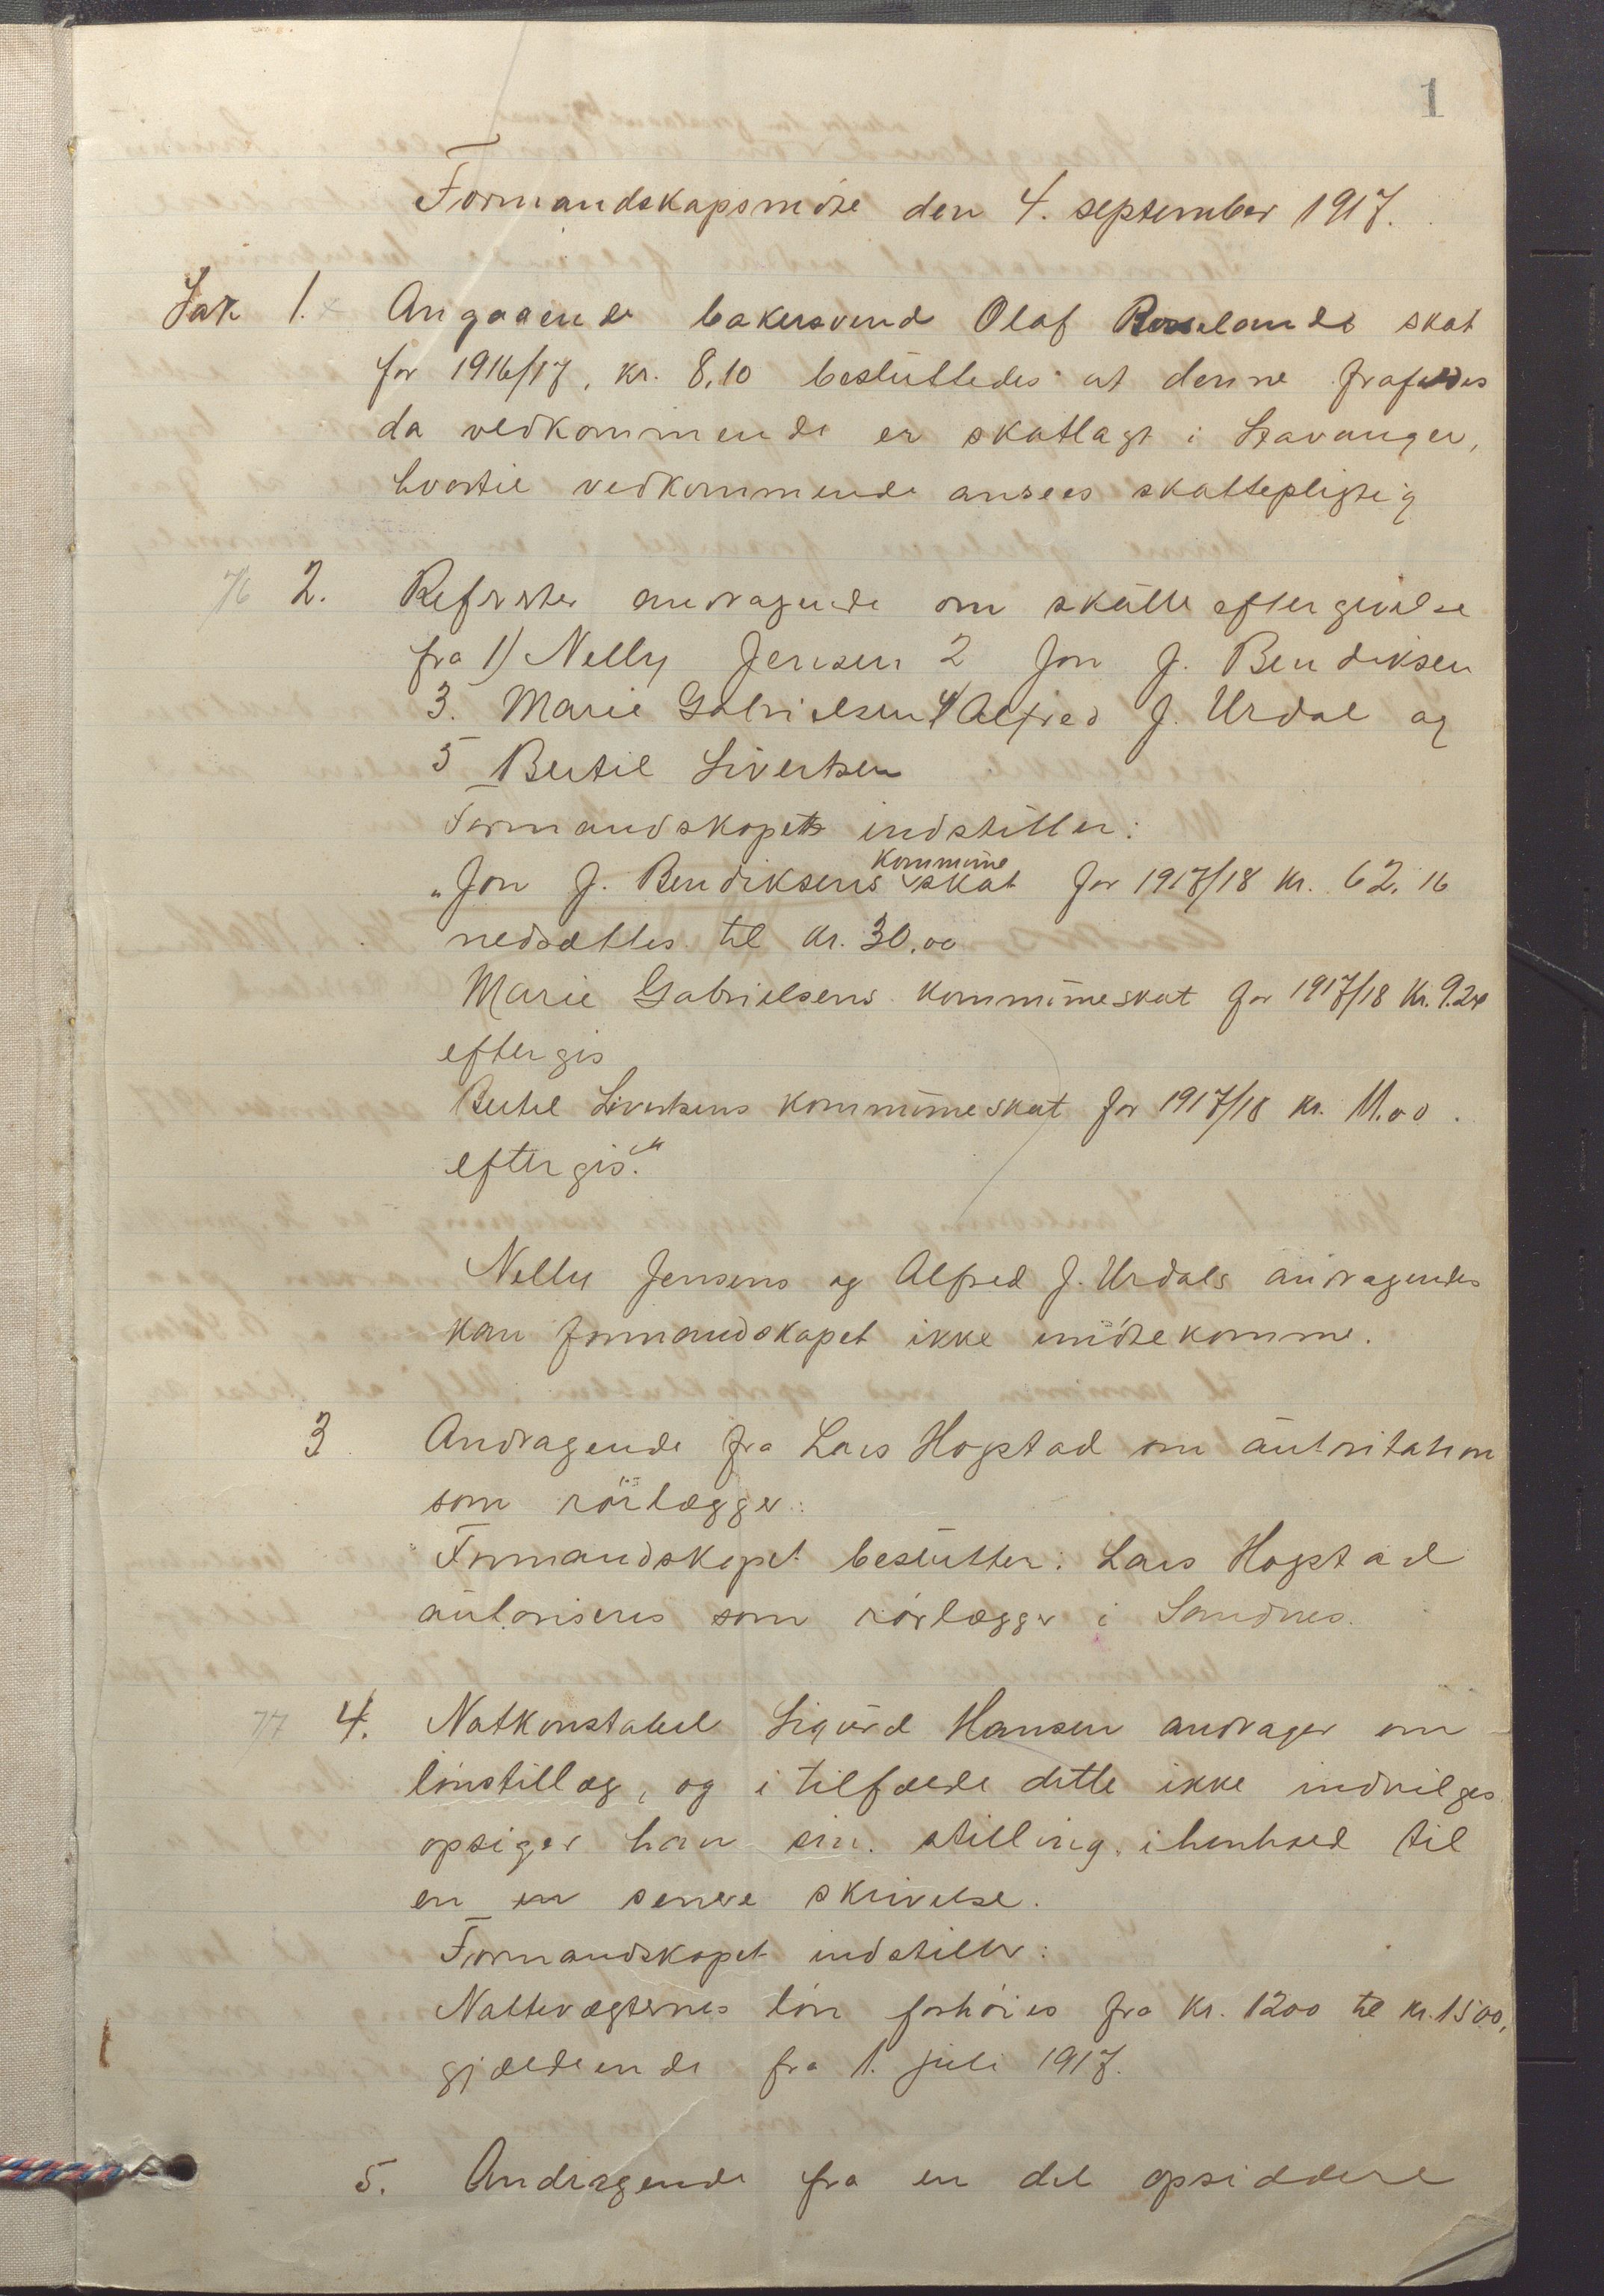 1
Formandskapsmöte den 4. september 1917.
Sak 1. Angaaende bakersvend Olaf Rosselands skat
for 1916/17, kr. 8,10 besluttedes at denne frafaldes
da vedkommende er skatlagt i Stavanger,
hvortil vedkommende ansees skattepligtig
76 2. Refererter andragende om skatteeftergivelse
fra 1) Nelly Jensen 2 Jon J. Bendiksen
3. Marie Gabrielsen 4/ Alfred J. Urdal og
5 Bertil Sivertsen
Formandskapet indstiller:
"Jon J. Bendiksens kommuneskat for 1917/18 kr. 62,16
nedsættes til kr. 30,00
Marie Gabrielsens kommuneskat for 1917/18 kr. 9.24
eftergis
Bertil Sivertsens kommuneskat for 1917/18 kr. 11.00.
eftergis."
Nelly Jensens og Alfred J. Urdals andragendes
kan formandskapet ikke imötekomme.
3 Andragende fra Lars Hogstad om autoritation
som rörlægger:
Formandskapet beslutter: Lars Hogstad
autoriseres som rörlægger i Sandnes.
77 4. Natkonstabel Sigurd Hansen andrager om
lönstillæg, og i tilfælde dette ikke indvilges
opsiger han sin stilling. i henhold til
en en senere skrivelse.
Formandskapet indstiller:
Nattevægternes lön forhöies fra kr. 1200 til kr. 1500,
gjældende fra 1. juli 1917.
5. Andragende fra en del opsiddere